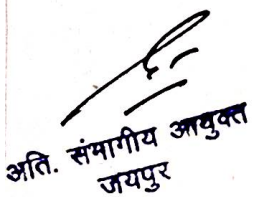 अति. संभागीय आयुक्त
जयपुर